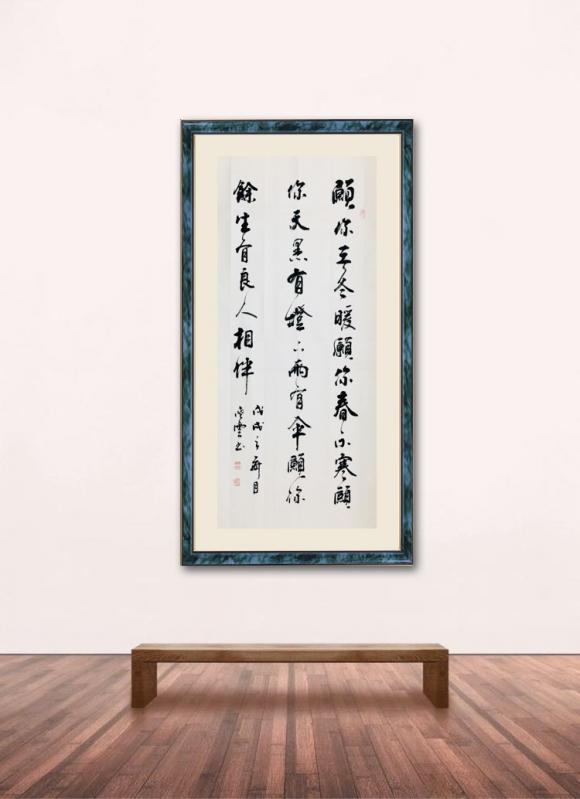 願你三冬暖願你春不寒願
你天黑有燈下雨有傘願你
餘生有良人相伴
戊戌之月
雲書